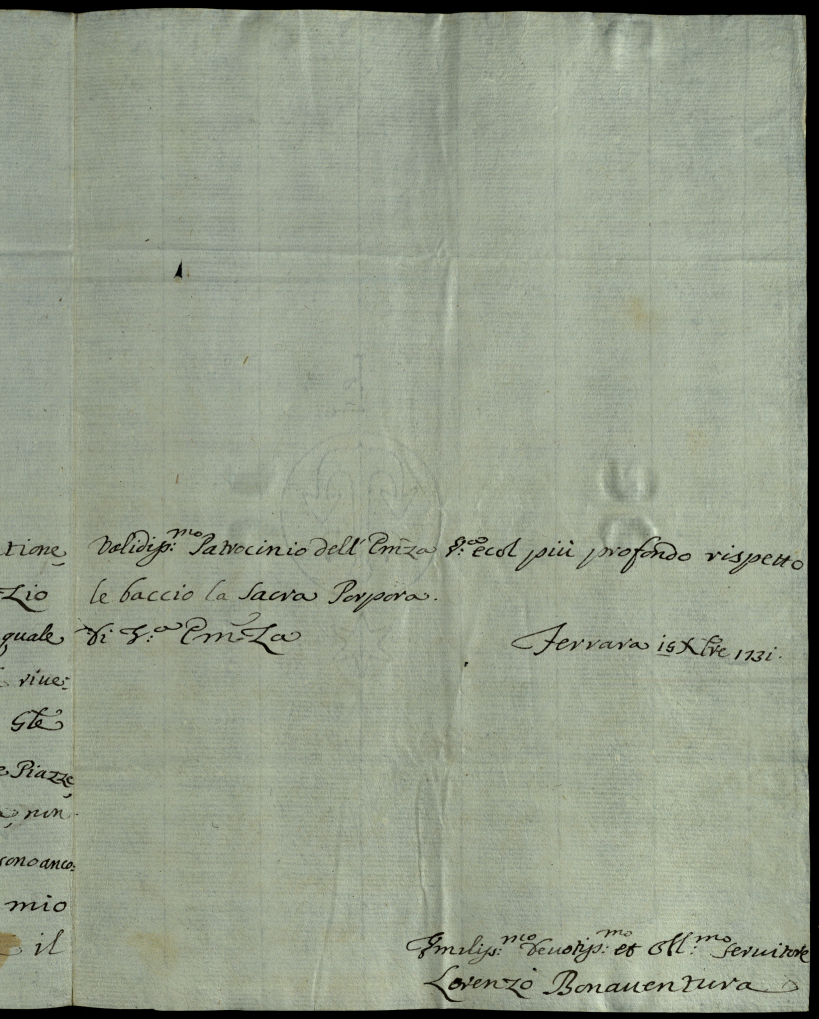 tione
zio
quale
riue:
Gle
e Piazze
non
sono anco:
mio
il
Validiss:mo Patrocinio dell' Emza V:a e col più profondo rispetto
le baccio la Sacra Porpora.
Di V:a Em:za
Ferrara 15 Xbre 1731.
Vmiliss:mo Deuotiss:mo et Obl:mo Seruitore
Lorenzo Bonauentura